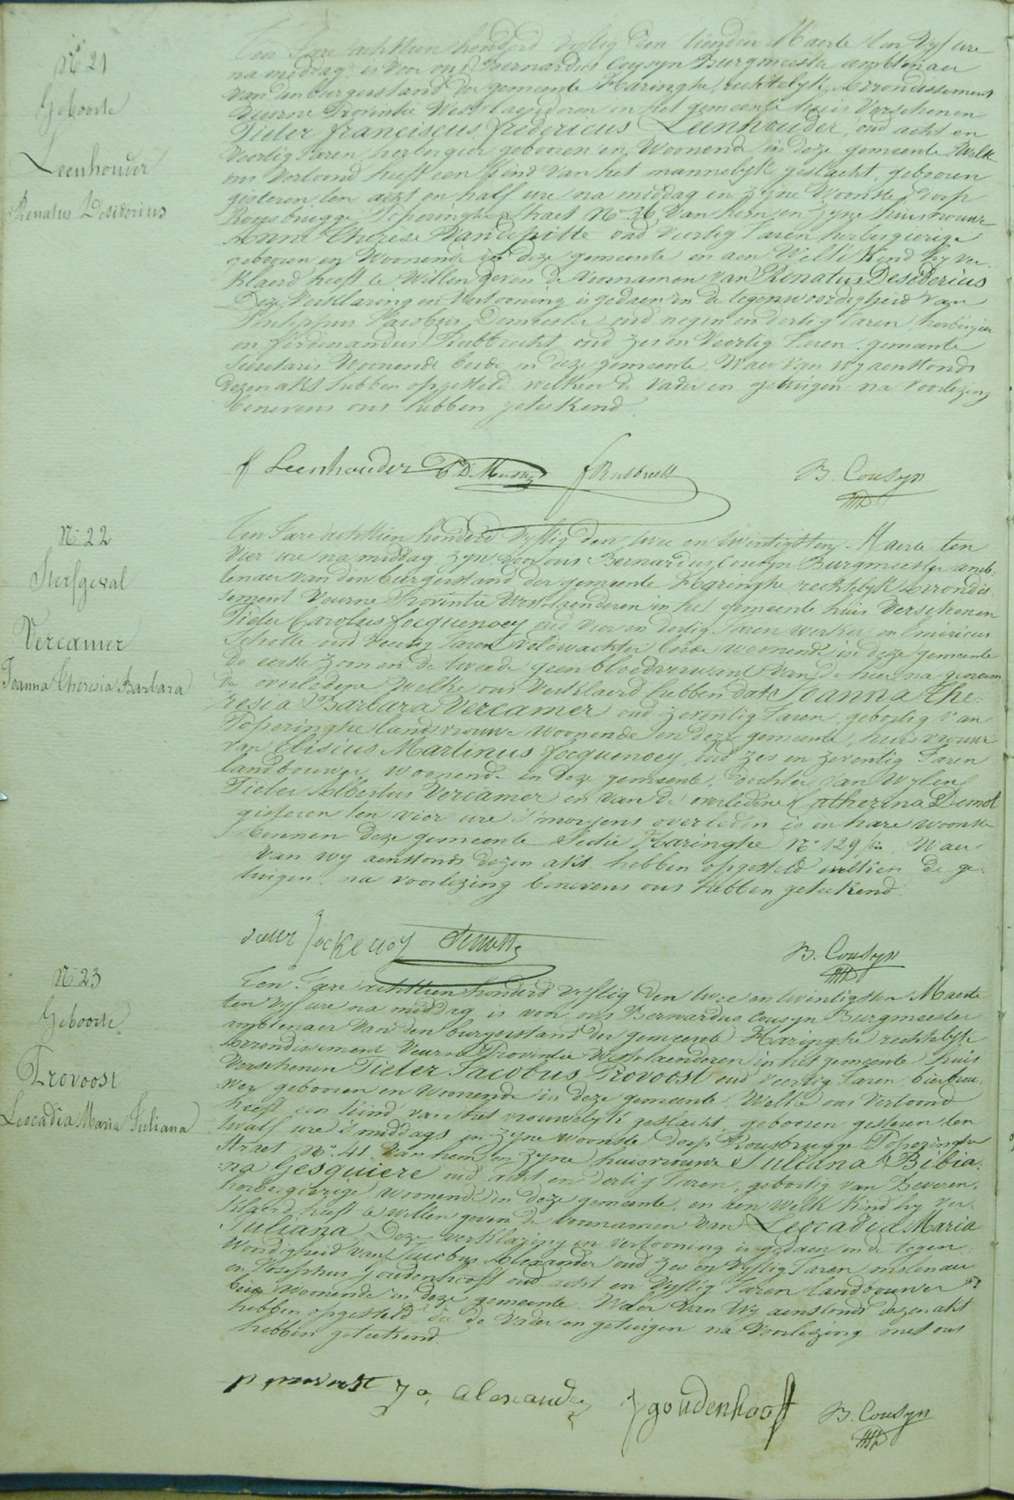 N° 21
Geboorte
Leenhouder
Renatus Desiderius
Ten Jare achttien honderd vyftig den tienden Maerte ten vyf ure
na middag is voor ons Bernardus Cousyn Burgmeester ambtenaer
van den burgerstand der gemeente Haringhe rechtelyk arrondissement
Veurne Provintie Westvlaenderen in het gemeente huis verschenen
Pieter Franciscus Fredericus Leenhouder, oud acht en
veertig Jaren herbergier geboren en woonende in deze gemeente welk
ons vertoond heeft een kind van het mannelyk geslacht, geboren
gisteren ten acht en half ure na middag in zyne woonste dorp
Rousbrugge Poperinghe straet N° 36 van hem en zyne huisvrouw
Anne Therese Vandepitte oud veertig Jaren herbergierige
geboren en woonende in deze gemeente en aen welk kind hy ver
klaerd heeft te willen geven de voornamen van Renatus Desiderius
Deze verklaring en vertooning is gedaen in de tegenwoordigheid van
Philippus Jacobus Demeester oud negen en dertig Jaren herbergier
en Ferdinandus Rubbrecht oud zes en veertig Jaren gemeente
secretaris woonende beide in deze gemeente. Waer van wy aenstonds
dezen akt hebben opgesteld welken de vader en getuigen na voorlezing
benevens ons hebben geteekend.
f Leenhouder B. Cousyn
N° 22
Sterfgeval
Vercamer
Joanna Theresia Barbara
Ten Jare achttien honderd vyftig den twee en twintigsten Maerte ten
vier ure na middag zyn voor ons Bernardus Cousyn Burgmeester amb
tenaer van den burgerstand der gemeente Haringhe rechtelyk arrondis
sement Veurne Provintie Westvlaenderen in het gemeente huis verschenen
Pieter Carolus Jocquenoey oud vier en dertig Jaren werker en
oud veertig Jaren veldwachter beide woonende in deze gemeente
de eerste zoon en de tweede geen bloedverwant van de hier na genoem
de overledene welke ons verklaerd hebben dat Joanna The
resia Barbara Vercamer oud zeventig Jaren geboortig van
Poperinghe landvrouw woonende in deze gemeente, huisvrouw
van Elisius Martinus Jocquenoey oud zes en zeventig Jaren
landbouwer woonende in deze gemeente, dochter van wylen
Pieter Albertus Vercamer en van de overledene Catherina Demol
gisteren ten vier ure s'morgens overleden is in hare woonste
binnen deze gemeente Sectie Haringhe N° 129 Waer
van wy aenstonds dezen akt hebben opgesteld welken de ge
tuigen na voorlezing benevens ons hebben geteekend
B. Cousyn
N° 23
Geboorte
Provoost
Leocadia Maria Juliana
Ten Jare achttien honderd vyftig den twee en twintigsten Maerte
ten vyf ure na middag is voor ons Bernardus Cousyn Burgmeester
ambtenaer van den burgerstand der gemeente Haringhe rechtelyk
arrondissement Veurne Provintie Westvlaenderen in het gemeente huis
verschenen Pieter Jacobus Provoost oud veertig Jaren bierbrou
wer geboren en woonende in deze gemeente. Welke ons vertoond
heeft een kind van het vrouwelyk geslacht, geboren gisteren ten
twalf ure s'middags in zyne woonste dorp Rousbrugge Poperinghe
straet N° 41 van hem en zyne huisvrouw Juliana Bibia
na Gesquiere oud acht en dertig Jaren, geboortig van Beveren,
herbergierige woonende in deze gemeente, en aen welk kind hy ver
klaerd heeft te willen geven de voornamen van Leocadia Maria
Juliana. Deze verklaring en vertooning is gedaen in de tegen
woordigheid van Jacobus Alexander oud zes en vyftig Jaren molenaer
en Josephus Goudenhooft oud acht en vyftig Jaren landbouwer
beide woonende in deze gemeente. Waer van wy aenstonds dezen akt
hebben opgesteld die de vader en getuigen na voorlezing met ons
hebben geteekend.
p provoost Ja, alexander J goudenhooft B. Cousyn